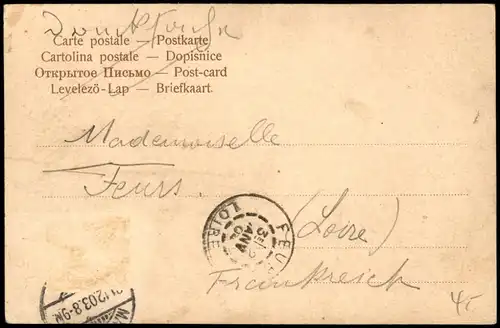 Drucksache
Carte postale — Postkarte
Cartolina postale — Dopisnice
Открытое Письмо — Post-card
Levelező-Lap — Briefkaart.
Mademoiselle
Feurs.
(Loire)
Frankreich
FEURS
LOIRE
JANV
04
12.03.8-9N.